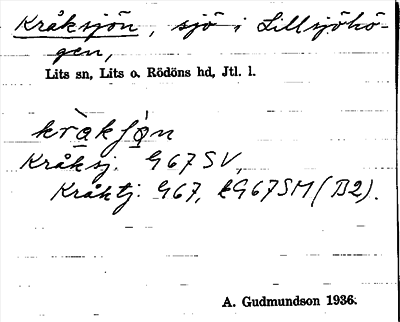 Kråksjön, sjö i Lillsjöhö-
gen,
Lits sn, Lits o. Rödöns hd, Jtl. l.
kràkʃọ̀n
Kråksj. G67 SV,
Kråktj. G67, kG67SM (B2).
A. Gudmundson 1936.